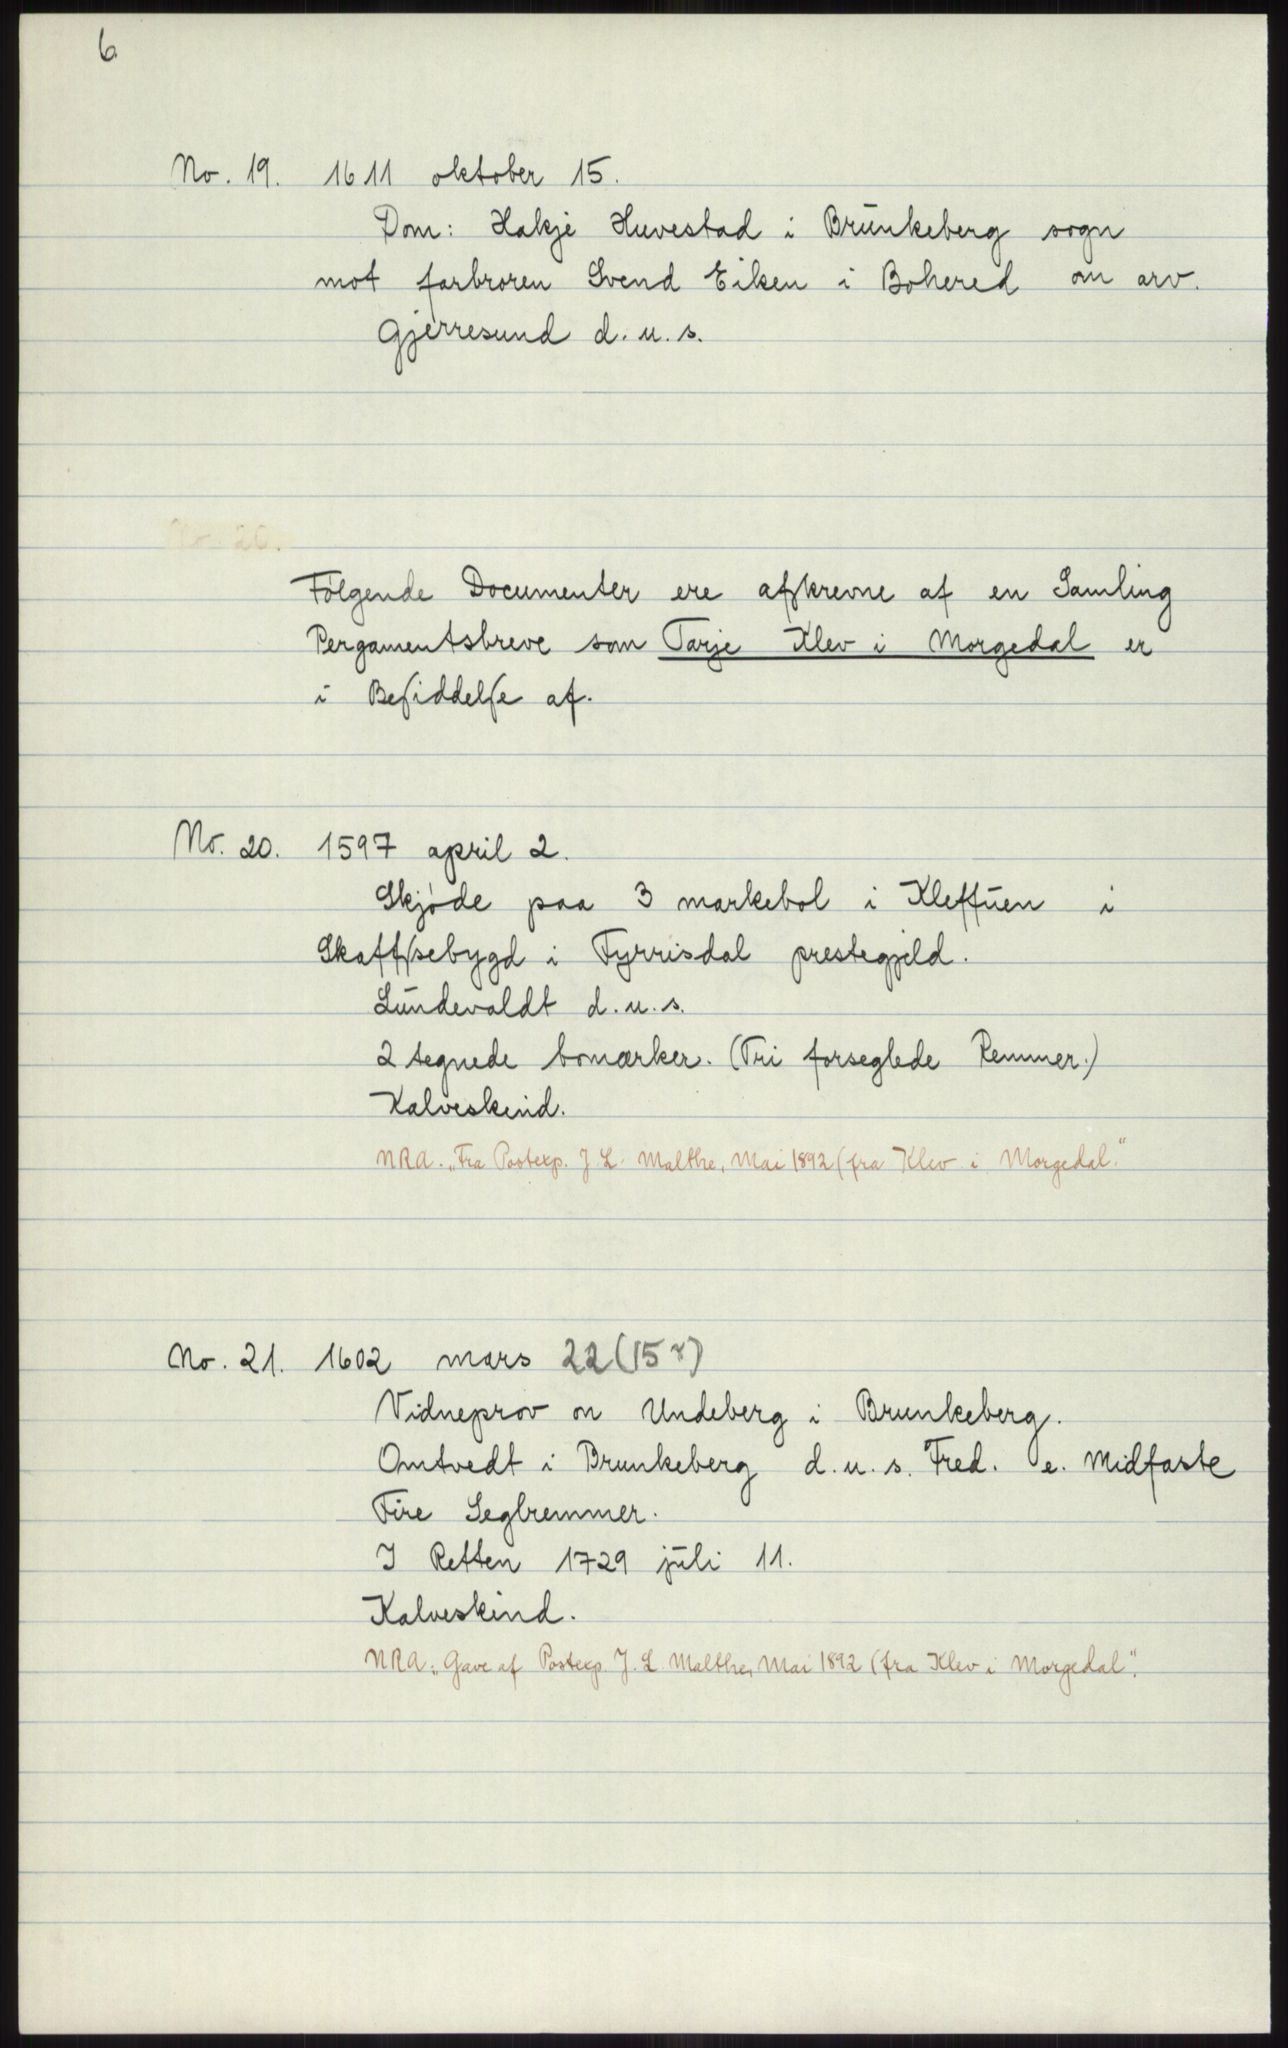 6
No. 19. 1611 oktober 15.
Dom: Hakje Huvestad i Brünkeberg sogn
mot farbroren Svend Eiken i Bohered om arv.
Gjerresund d. u. s.
No. 20.
Følgende Documenter ere afskrevne af en Samling
Pergamentsbreve som Tarje Klev i Morgedal er
i Besiddelse af.
No. 20. 1597 april 2.
Skjøde paa 3 markebol i Kleffüen i
Skaffsebygd i Tyrrisdal prestegjeld.
Lündevaldt d. u. s.
2 tegnede bomærker. (Tri forseglede Remmer.)
Kalveskind.
NRA. „Fra Postexp. J. L. Malthe, Mai 1892 (fra Klev i Morgedal."
No. 21. 1602 mars 22 (15
Vidneprov on Undeberg i Brunkeberg.
Omtvedt i Brunkeberg d. u. s. Fred. e. Midfaste
Fire Seglremmer.
I Retten 1729 jüli 11.
Kalveskind.
NRA. „Gave af Postexp. J. L. Malthe, Mai 1892 (fra Klev i Morgedal".